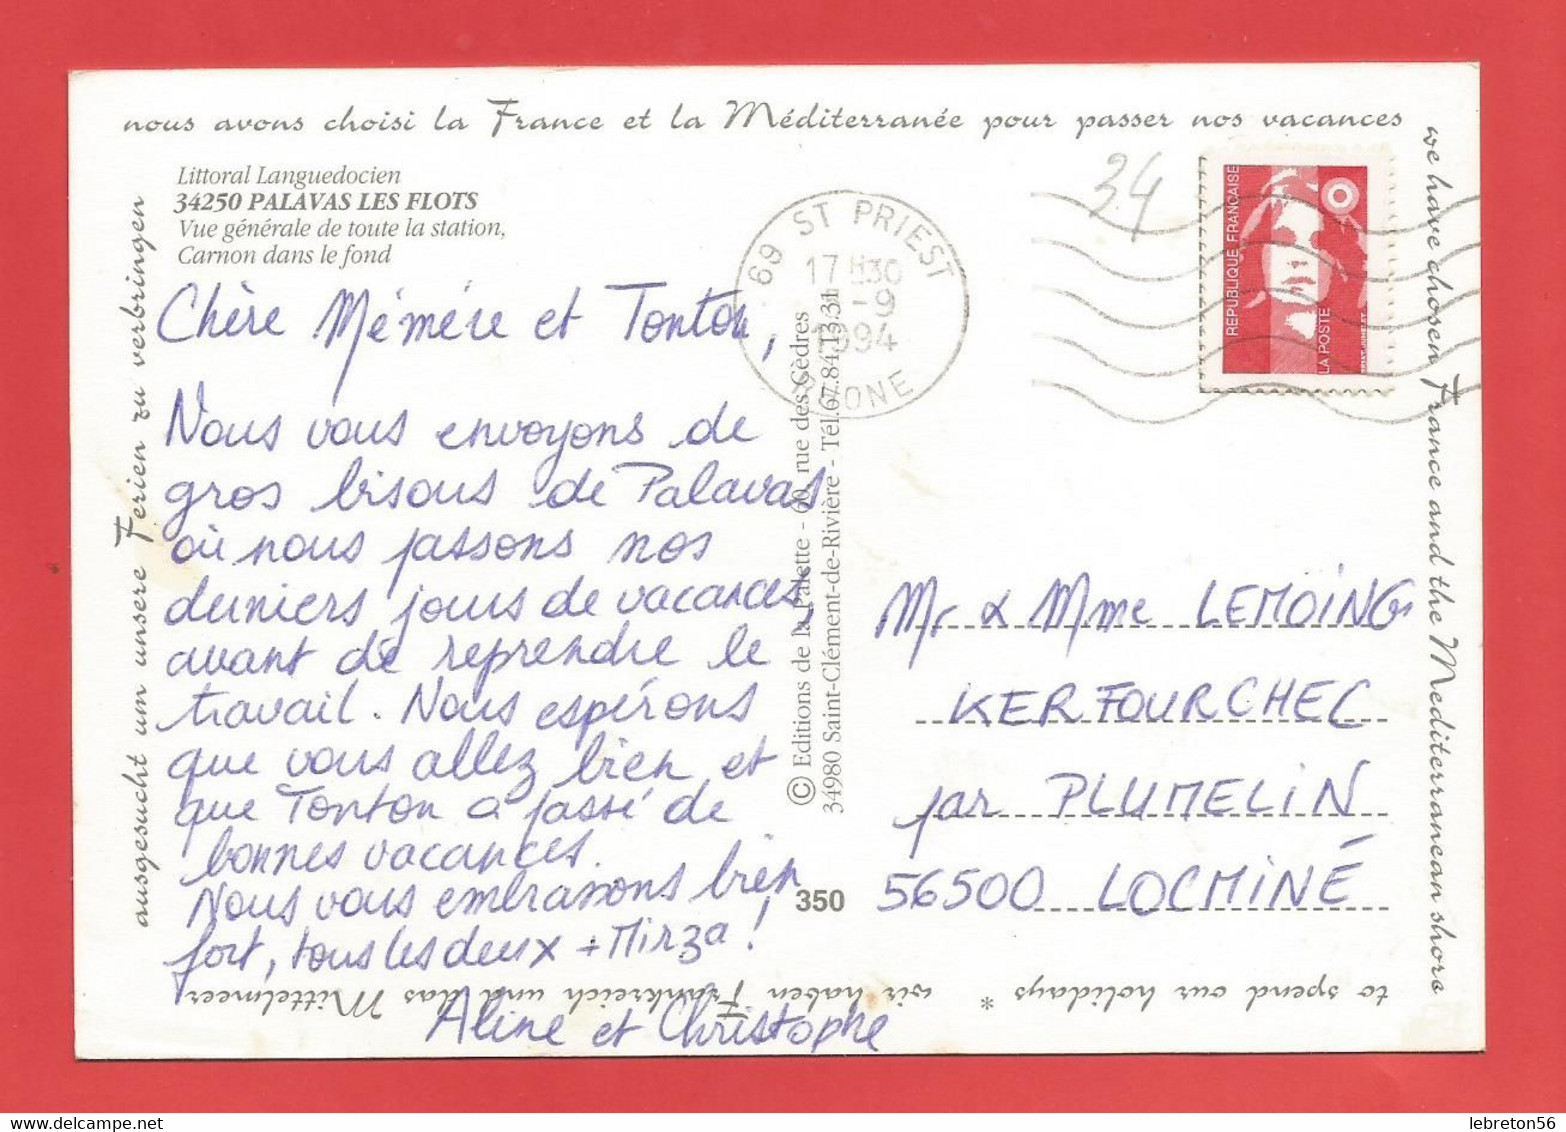 nous avons choisi la France et la Méditerranée pour passer nos vacances
we have chosen France and the Mediterranean shore
to spend our holidays * wir haben Frankreich und das Mittelmeer
ausgesucht um unsere Ferien zu verbringen
Littoral Languedocien
34250 PALAVAS LES FLOTS
Vue générale de toute la station,
Carnon dans le fond
Chère Mémére et Tonton,
Nous vous envoyons de
gros bisous de Palavas
où nous passons nos
derniers jours de vacances,
avant de reprendre le
travail. Nous espérons
que vous allez bien et
que Tonton a passé de
bonnes vacances.
Nous vous embrassons bien
fort, tous les deux + Mirza !
Aline et Christophe
© Editions de la Palette - rue des Cèdres
34980 Saint-Clément-de-Rivière - Tél.67.84.13.31
350
69 ST PRIEST
17 H30
-9
1994
RHONE
34
REPUBLIQUE FRANÇAISE
LA POSTE
Mr & Mme LEMOING
KERFOURCHEC
par PLUMELIN
56500 LOCMINÉ
lebreton56